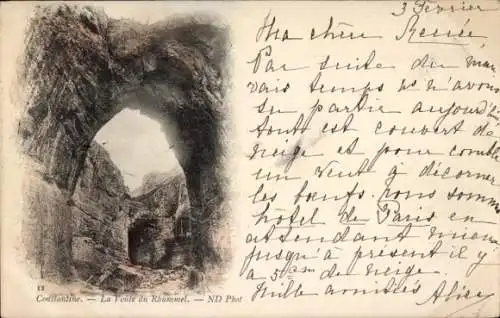 3 Février
Ma chère Renée
Par suite du mau
vais temps ns n'avons
su partir aujourd'hui
tout est couvert de
neige et pour comble
un vent à décorner
les bœufs. nous sommes
hôtel de Paris en
attendant mieux
jusqu'à présent il y
a 5cm de neige.
Mille amitiés Alice
12
Constantine. — La Voute du Rhummel. — ND Phot